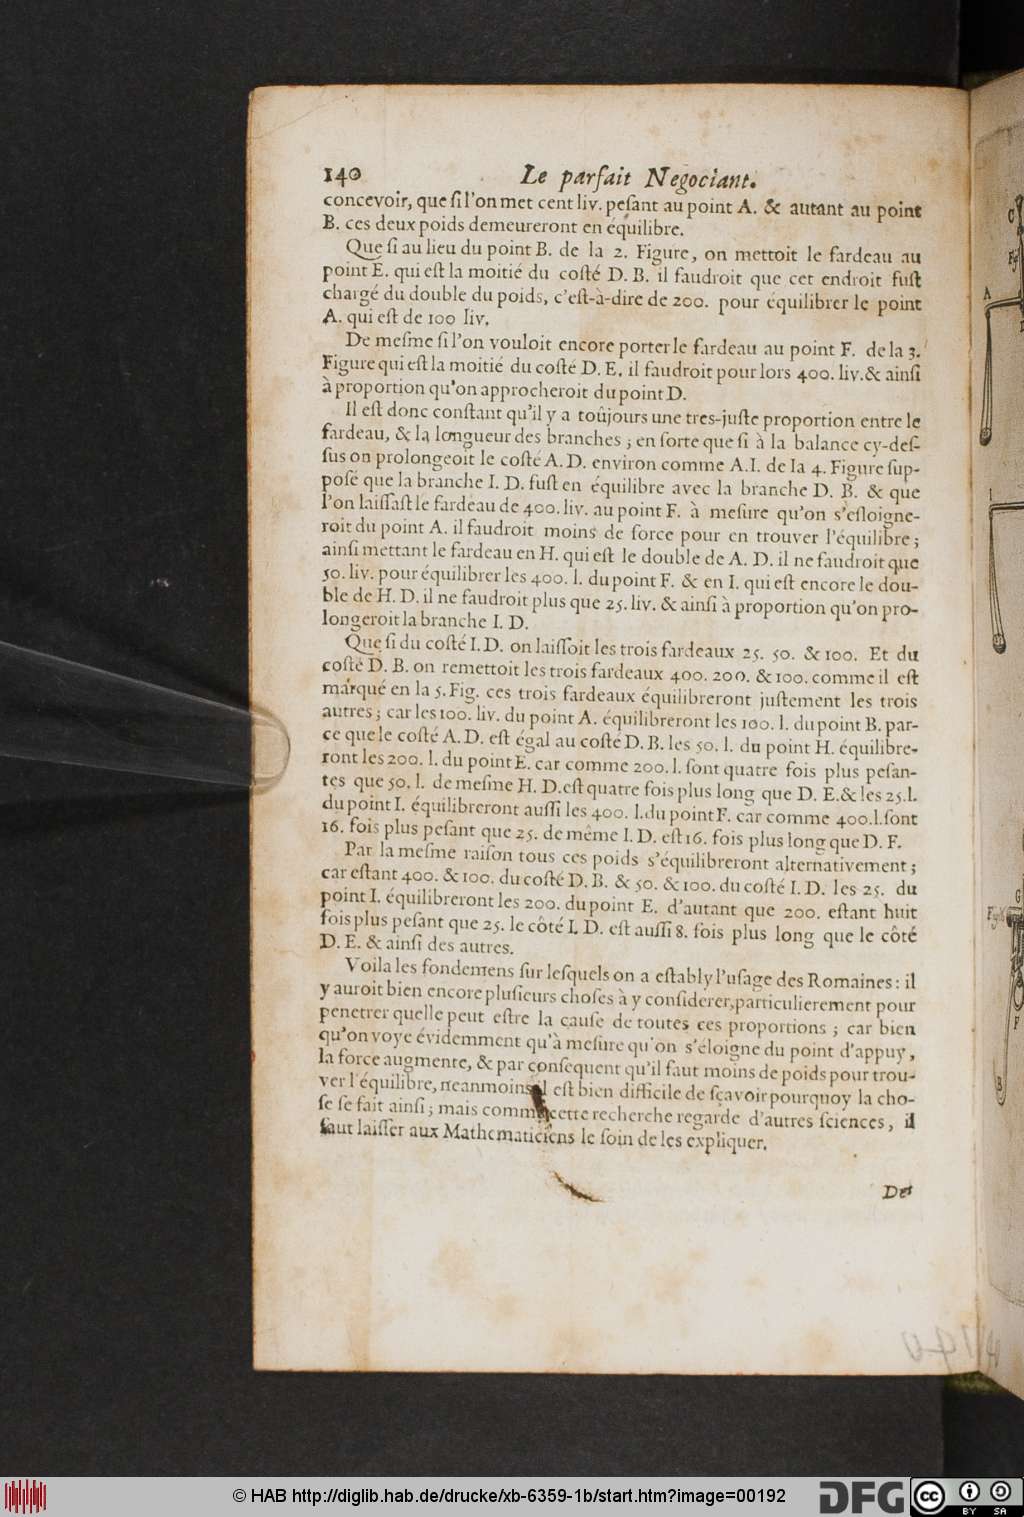 140 Le parfait Negociant.
concevoir, que ſi l'on met cent liv. peſant au point A. & autant au point
B. ces deux poids demeureront en équilibre.
Que ſi au lieu du point B. de la 2. Figure, on mettoit le fardeau au
point E. qui eſt la moitié du coſté D. B. il faudroit que cet endroit fuſt
chargé du double du poids, c'eſt-à-dire de 200. pour équilibrer le point
A. qui eſt de 100 liv.
De meſme ſi l'on vouloit encore porter le fardeau au point F. de la 3.
Figure qui eſt la moitié du coſté D. E. il faudroit pour lors 400. liv. & ainſi
à proportion qu'on approcheroit du point D.
Il eſt donc conſtant qu'il y a toûjours une tres-juſte proportion entre le
fardeau, & la longueur des branches ; en ſorte que ſi à la balance cy-deſ-
ſus on prolongeoit le coſté A. D. environ comme A. I. de la 4. Figure ſup-
poſé que la branche I. D. fuſt en équilibre avec la branche D. B. & que
l'on laiſſaſt le fardeau de 400. liv. au point F. à meſure qu'on s'eſloigne-
roit du point A. il faudroit moins de force pour en trouver l'équilibre ;
ainſi mettant le fardeau en H. qui eſt le double de A. D. il ne faudroit que
50. liv. pour équilibrer les 400. l. du point F. & en I. qui eſt encore le dou-
ble de H. D. il ne faudroit plus que 25. liv. & ainſi à proportion qu'on pro-
longeroit la branche I. D.
Que ſi du coſté I. D. on laiſſoit les trois fardeaux 25. 50. & 100. Et du
coſté D. B. on remettoit les trois fardeaux 400. 200. & 100. comme il eſt
marqué en la 5. Fig. ces trois fardeaux équilibreront juſtement les trois
autres ; car les 100. liv. du point A. équilibreront les 100. l. du point B. par-
ce que le coſté A. D. eſt égal au coſté D. B. les 50. l. du point H. équilibre-
ront les 200. l. du point E. car comme 200. l. ſont quatre fois plus peſan-
tes que 50. l. de meſme H. D. eſt quatre fois plus long que D. E. & les 25. l.
du point I. équilibreront auſſi les 400. l. du point F. car comme 400. l. ſont
16. fois plus peſant que 25. de même I. D. eſt 16. fois plus long que D. F.
Par la meſme raiſon tous ces poids s'équilibreront alternativement ;
car eſtant 400. & 100. du coſté D. B. & 50. & 100. du coſté I. D. les 25. du
point I. équilibreront les 200. du point E. d'autant que 200. eſtant huit
fois plus peſant que 25. le côté I. D. eſt auſſi 8. fois plus long que le côté
D. E. & ainſi des autres.
Voila les fondemens ſur leſquels on a eſtably l'uſage des Romaines : il
y auroit bien encore pluſieurs choſes à y conſiderer, particulierement pour
penetrer quelle peut eſtre la cauſe de toutes ces proportions ; car bien
qu'on voye évidemment qu'à meſure qu'on s'éloigne du point d'appuy,
la force augmente, & par conſequent qu'il faut moins de poids pour trou-
ver l'équilibre, neanmoins il eſt bien difficile de ſçavoir pourquoy la cho-
ſe ſe fait ainſi ; mais comme cette recherche regarde d'autres ſciences, il
faut laiſſer aux Mathematiciens le ſoin de les expliquer.
De
C
A
I
G
F
B
© HAB http://diglib.hab.de/drucke/xb-6359-1b/start.htm?image=00192
DFG
cc
BY SA